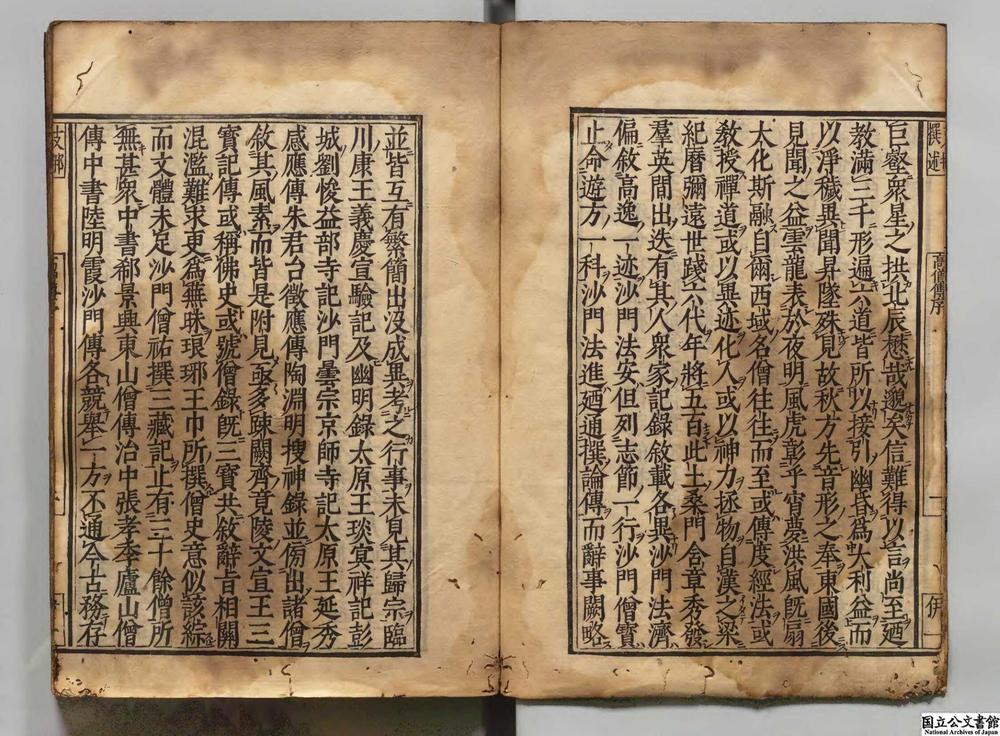 撰述
高僧傳序
巨壑衆星之拱北辰懋哉邈矣信難得以言尚至廼
教滿三千形遍六道皆所以接引幽昏爲大利益而
以淨穢異聞昇墜殊見故秋方先音形之奉東國後
見聞之益雲龍表於夜明風虎彰乎宵夢洪風既扇
太化斯融自爾西域名僧往往而至或傳度經法或
教授禪道或以異迹化人或以神力拯物自漢之梁
紀曆彌遠世踐六代年將五百此土桑門含章秀發
羣英間出迭有其人衆家記錄敘載各異沙門法濟
偏敘高逸一迹沙門法安但列志節一行沙門僧寶
止命遊方一科沙門法進廼通撰論傳而辭事闕略
並皆互有繁簡出没成異考之行事未見其歸宗臨
川康王義慶宣驗記及幽明錄太原王琰冥祥記彭
城劉悛益部寺記沙門曇宗京師寺記太原王延秀
感應傳朱君台徵應傳陶淵明搜神錄並傍出諸僧
敘其風素而皆是附見亟多踈闕齊竟陵文宣王三
寶記傳或稱佛史或號僧錄既三寶共敘辭旨相關
混濫難求更爲蕪昧琅琊王巾所撰僧史意似該綜
而文體未足沙門僧祐撰三藏記止有三十餘僧所
無甚衆中書郗景興東山僧傳治中張孝季廬山僧
傳中書陸明霞沙門傳各競舉一方不通今古務存
国立公文書館
National Archives of Japan